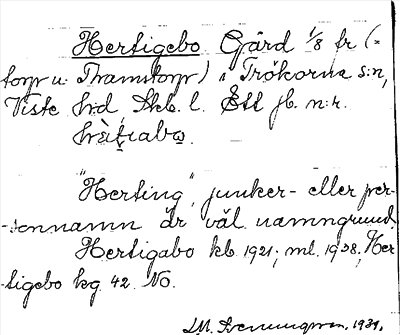 Hertigebo Gård 1/8 fr (=
torp u. Thamstorp) i Trökörna s:n,
Viste h:d Skb. l. Ett jb. n:r.
"Herting", junker- eller per-
-sonnamn är väl namngrund.
Hertigabo kb. 1921; ml. 1938; Her
-tigebo kg. 42. No.
1939.